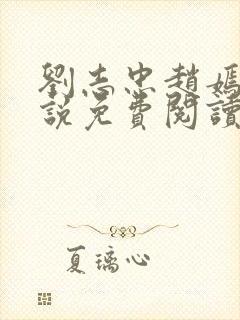 劉志忠趙嫣
說免費閱讀
夏璃心